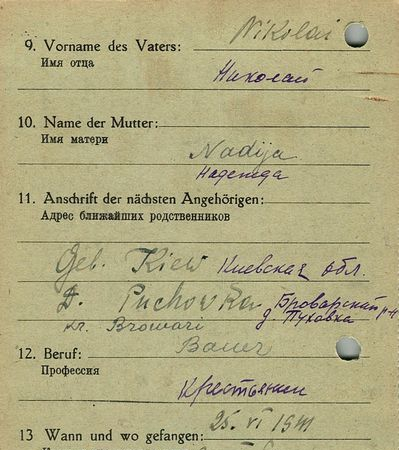 Nikolai
9. Vorname des Vaters:
Имя отца
Николай
10. Name der Mutter:
Имя матери
Nadija
Надежда
11. Anschrift der nächsten Angehörigen:
Адрес ближайших родственников
Geb. Kiew Киевская обл.
D. Puchowka Броварский р-н
Kr. Browari д. Пуховка
12. Beruf: Bauer
Профессия
Крестьянин
13 Wann und wo gefangen: 25. VI 1941